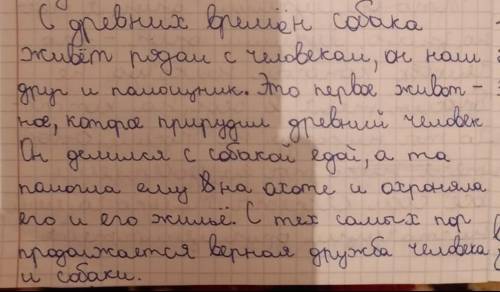 С древних времён собака
живёт рядом с человеком, он наш
друг и помощник. Это первое живот-
ное, которое приручил древний человек
Он делился с собакой едой, а та
помогла ему на охоте и охроняла
его и его жильё. С тех самых пор
продолжается верная дружба человека
и собаки.